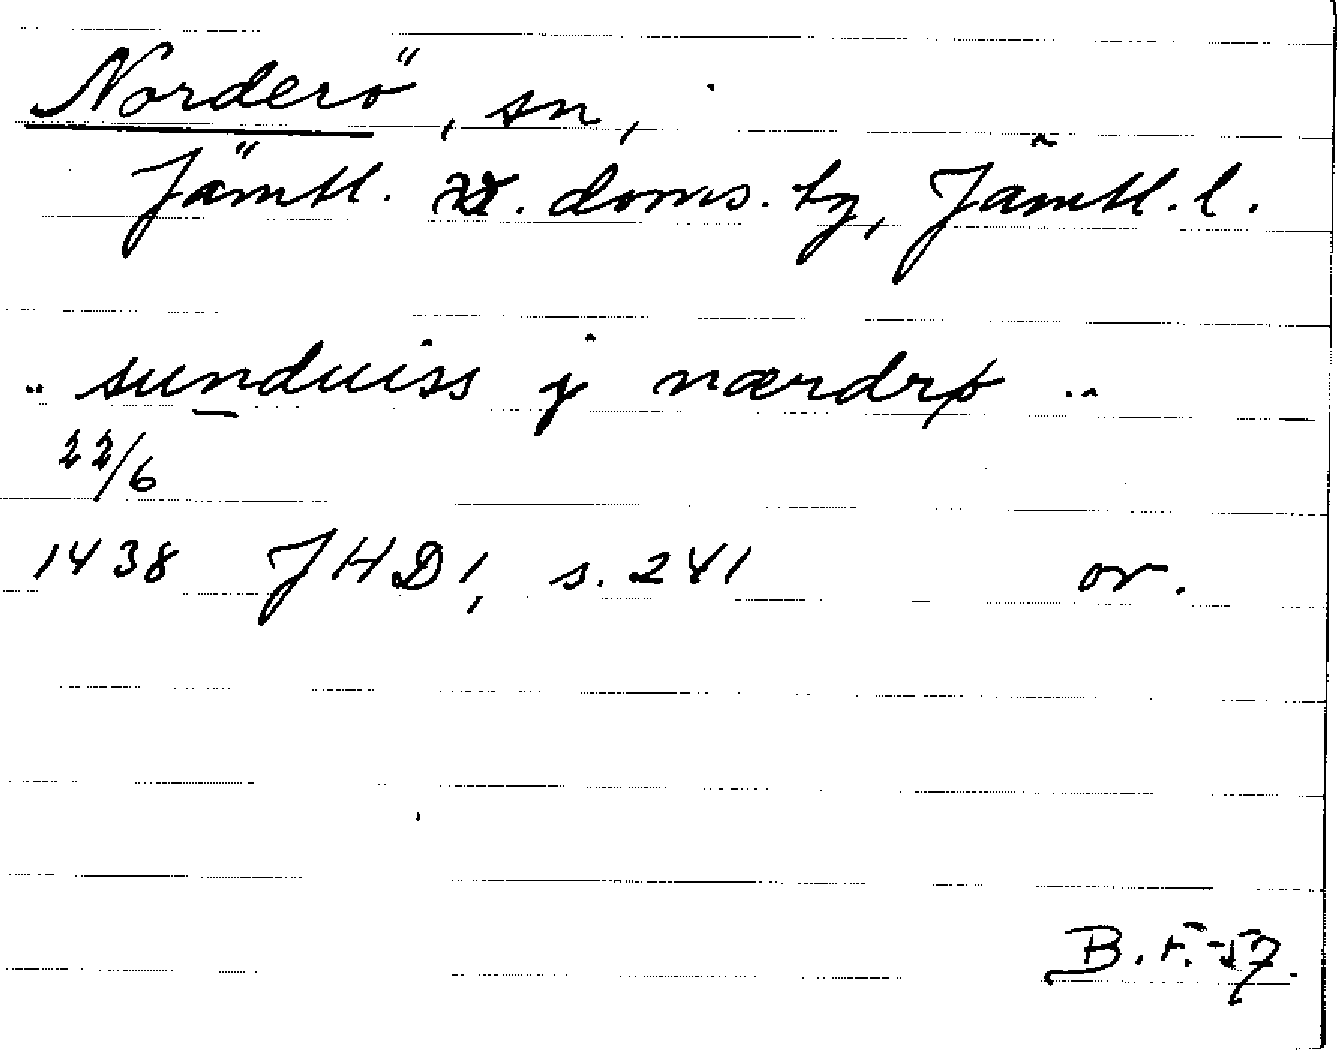 Norderö, sn,
Jämtl. v. doms. hg, Jämtl. l.
.. sunduiss j nærdrø ..
22/6
1438 JHD 1, s. 241 or.
B. F. -57.